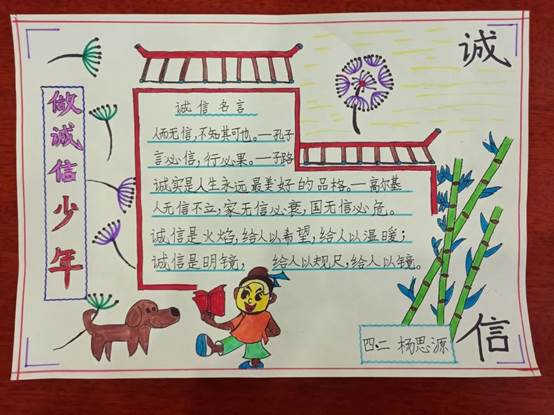 做诚信少年
诚信
诚信名言
人而无信，不知其可也。—孔子
言必信，行必果。—子路
诚实是人生永远最美好的品格。—高尔基
人无信不立，家无信必衰，国无信必危。
诚信是火焰，给人以希望，给人以温暖；
诚信是明镜，给人以规尺，给人以镜。
四.二 杨思源